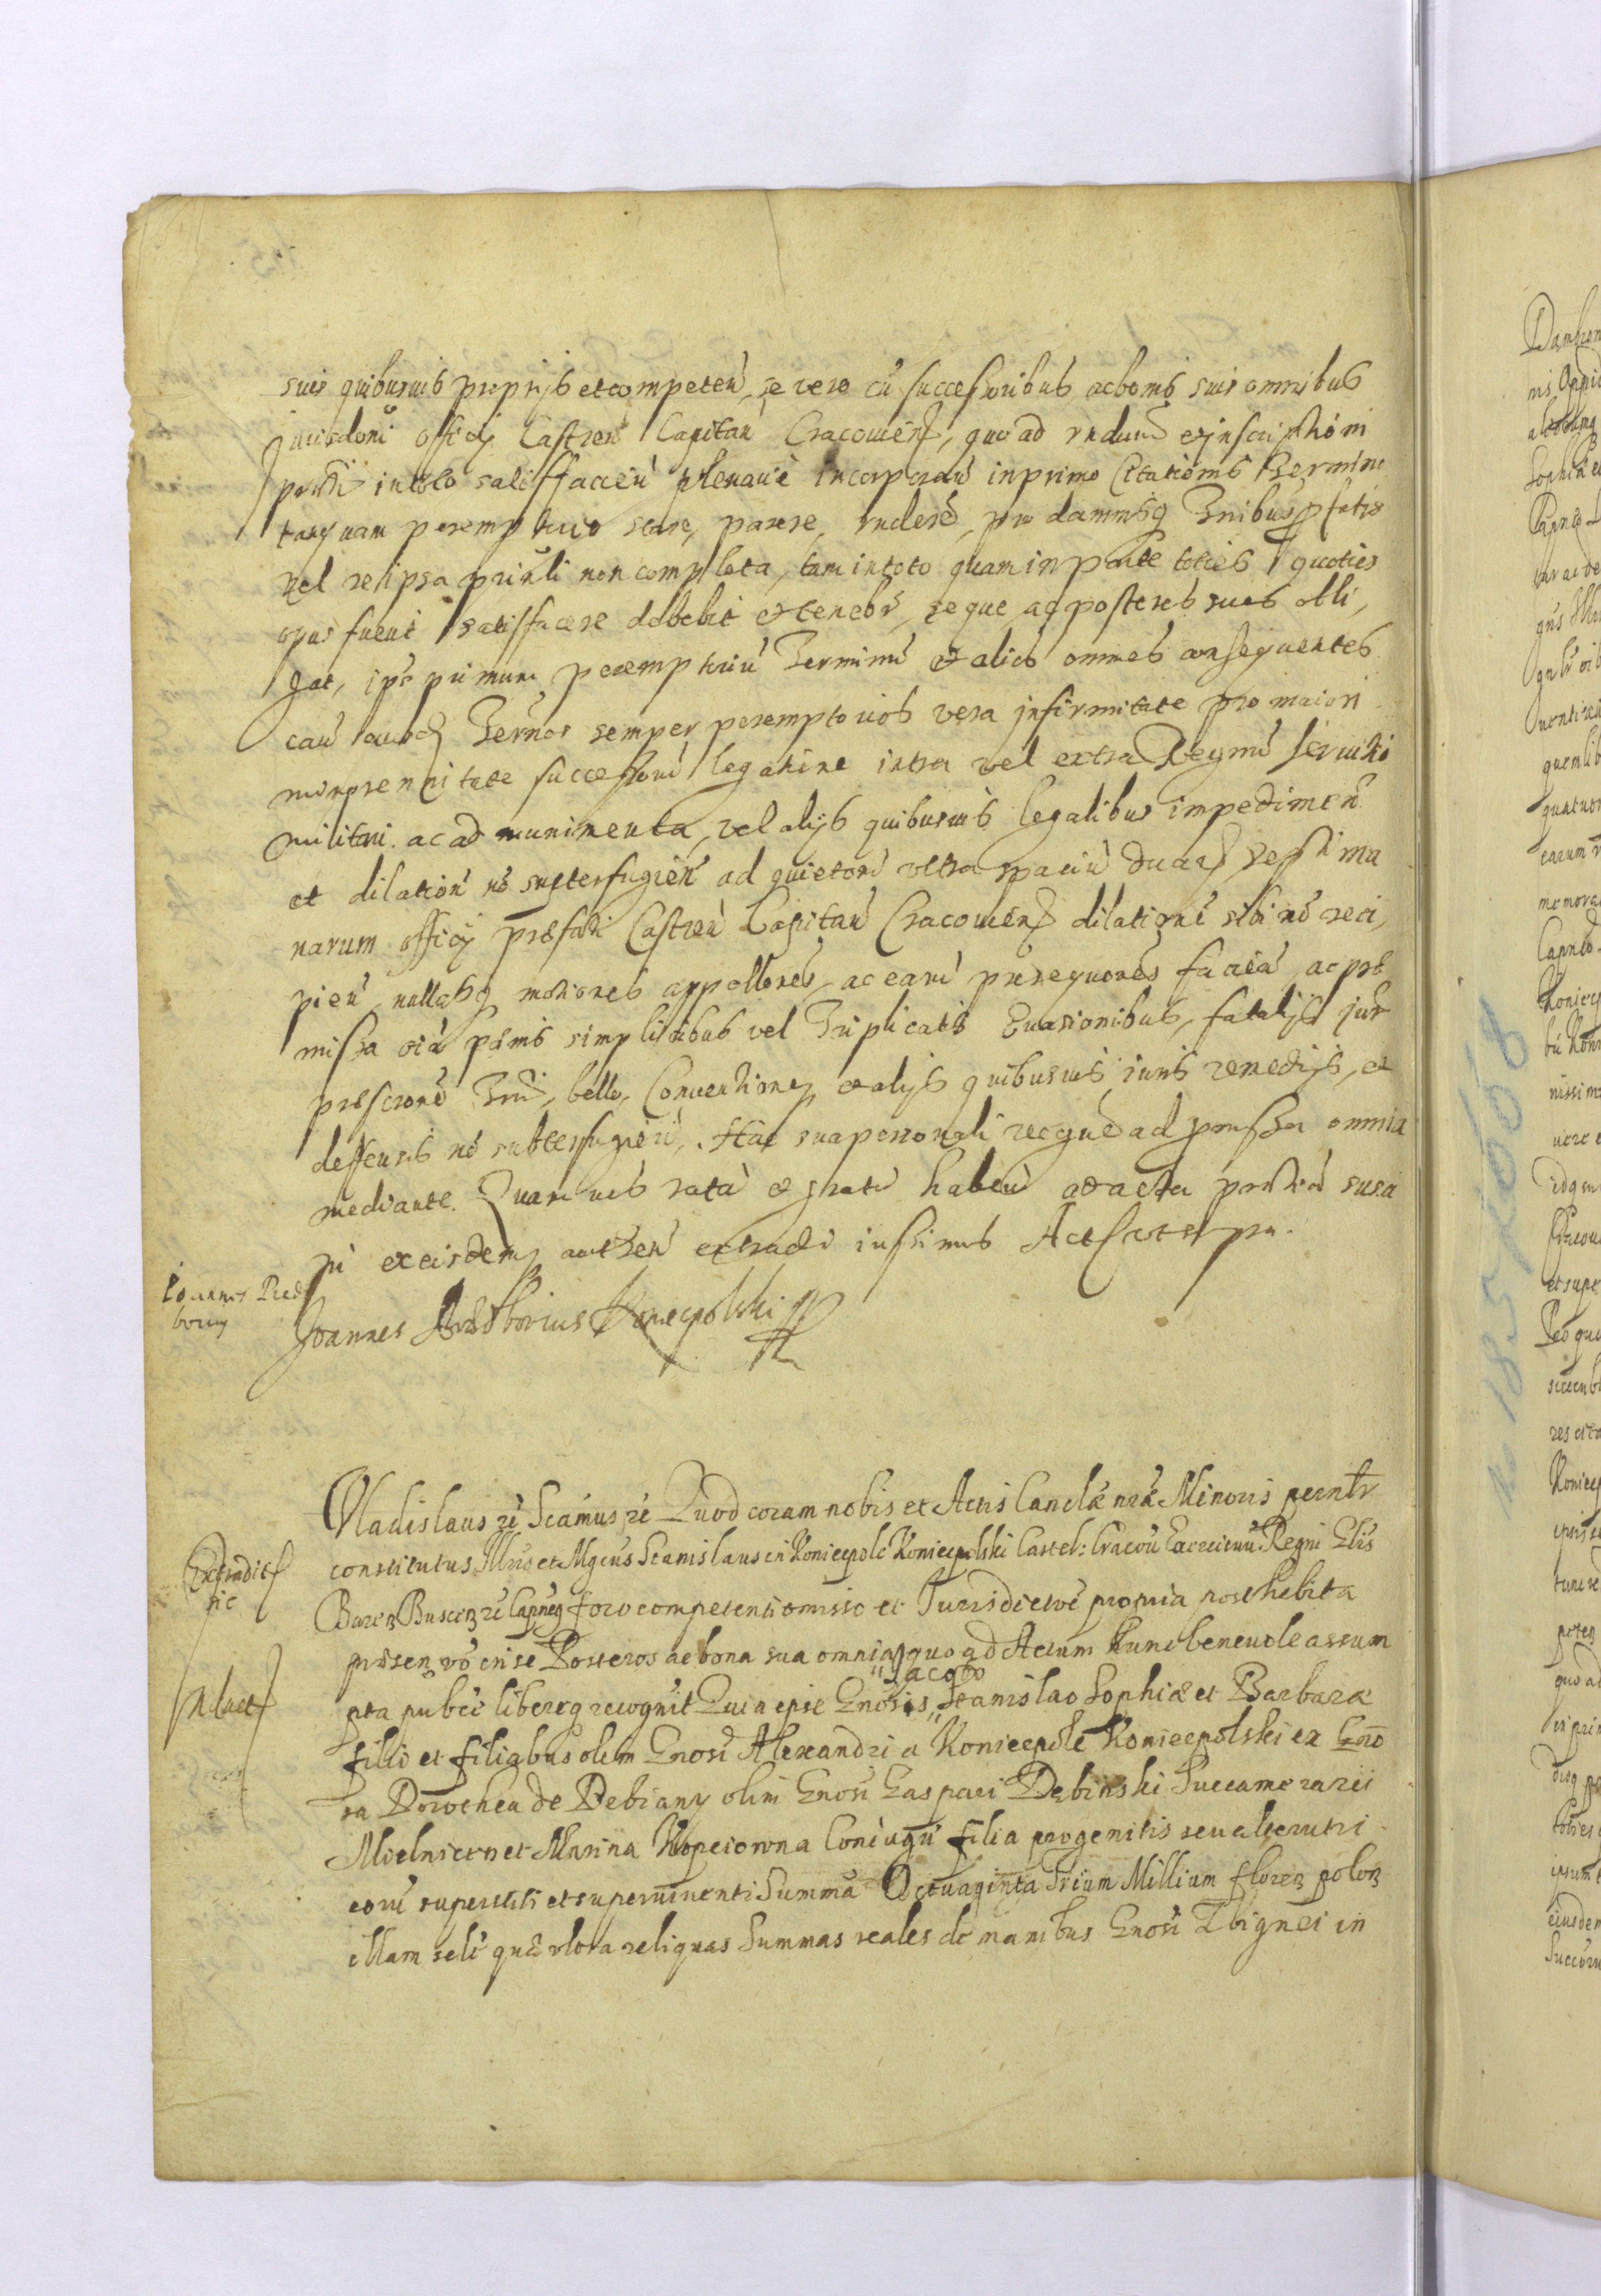 suis quibusuis proprijs et competen̄, se vero cū successoribus ac bonis suis omnibus
jurisdoni officij Castren̄ Capitan̄ Cracouien̄, quo ad undum et inscriptioni
pnti in toto satisffacien̄ plenarie incorporan̄ in primo Citationis Termino
tanquam peremptorio stare, parere, rndere, pro damnisq Tnibus pfatis
vel re ipsa prinli non completa, tam in toto quam in parte toties quoties
opus fuerit satisfacere debebit et tenebr, seque ac posteros suos obli,
gat, ipse primum peremptoriū Terminū et alios omnes consequentes
Ternos semper peremptorios vera infirmitate pro maiori
minorennitate successorū legatione intra vel extra Regnū seruitio
militari ac ad munimenta, vel alijs quibusuis legalibus impedimen̄
et dilation̄ nō supterfugien̄ ad quietonē ultra spaciū duarū septima
narum officij præfati Castren̄ Capitan̄ Cracouien̄ dilationē sibi nō reci,
pien̄ nullasq motiones appellones, ac earū prosequones facien̄, ac præ
missa oia pænis simplicibus vel Triplicatis Euasionibus, fatalijs jur
præscrone Trni, bello, Conuentione, et alijs quibusuis iuris remedijs, et
deffensis nō subterfugien̄, Hac sua personali recgne ad prmissa omnia
mediante. Quam nos ratā et gratā haben̄ ad acta pntia susci
pi ex eisdemq authen̄ extradi iussimus Act ut supra.
Ioannes Præd
borius
Joannes Prædborius Koniecpolski
Vladislaus &c Scamus, &c Quod coram nobis et Actis Cancla nrā Minoris psentr
constitutus Illris et Mgcus Stanislaus in Koniecpole Koniecpolski Castel: Cracoū Exercituū Regni Glis
Baren Buscen &c Capneq foro competenti omisso et Jurisdictoē propria posthabita
Extradit
sic
præsen vō in se Posteros ac bona sua omnia quo ad Actum hunc beneuole assum
Induct
pta publce libereq recognuit Quia ipse Gnosis, Stanislao Sophiæ et Barbaræ
Jacobo
filio et filiabus olim Gnosi Alexandri a Koniecpole Koniecpolski ex Gno
sa Dorothea de Debiany olim Gnosi Gaspari Debinski Succamerarii
Mielnicen et Marina Kopciowna Coniugū filia progenitis seu alterutri
eorū superstiti et superuiuenti Summā Octuaginta Trium Millium floren polon
illam scilt quæ ultra reliquas Summas reales de manibus Gnosi Zbignei in